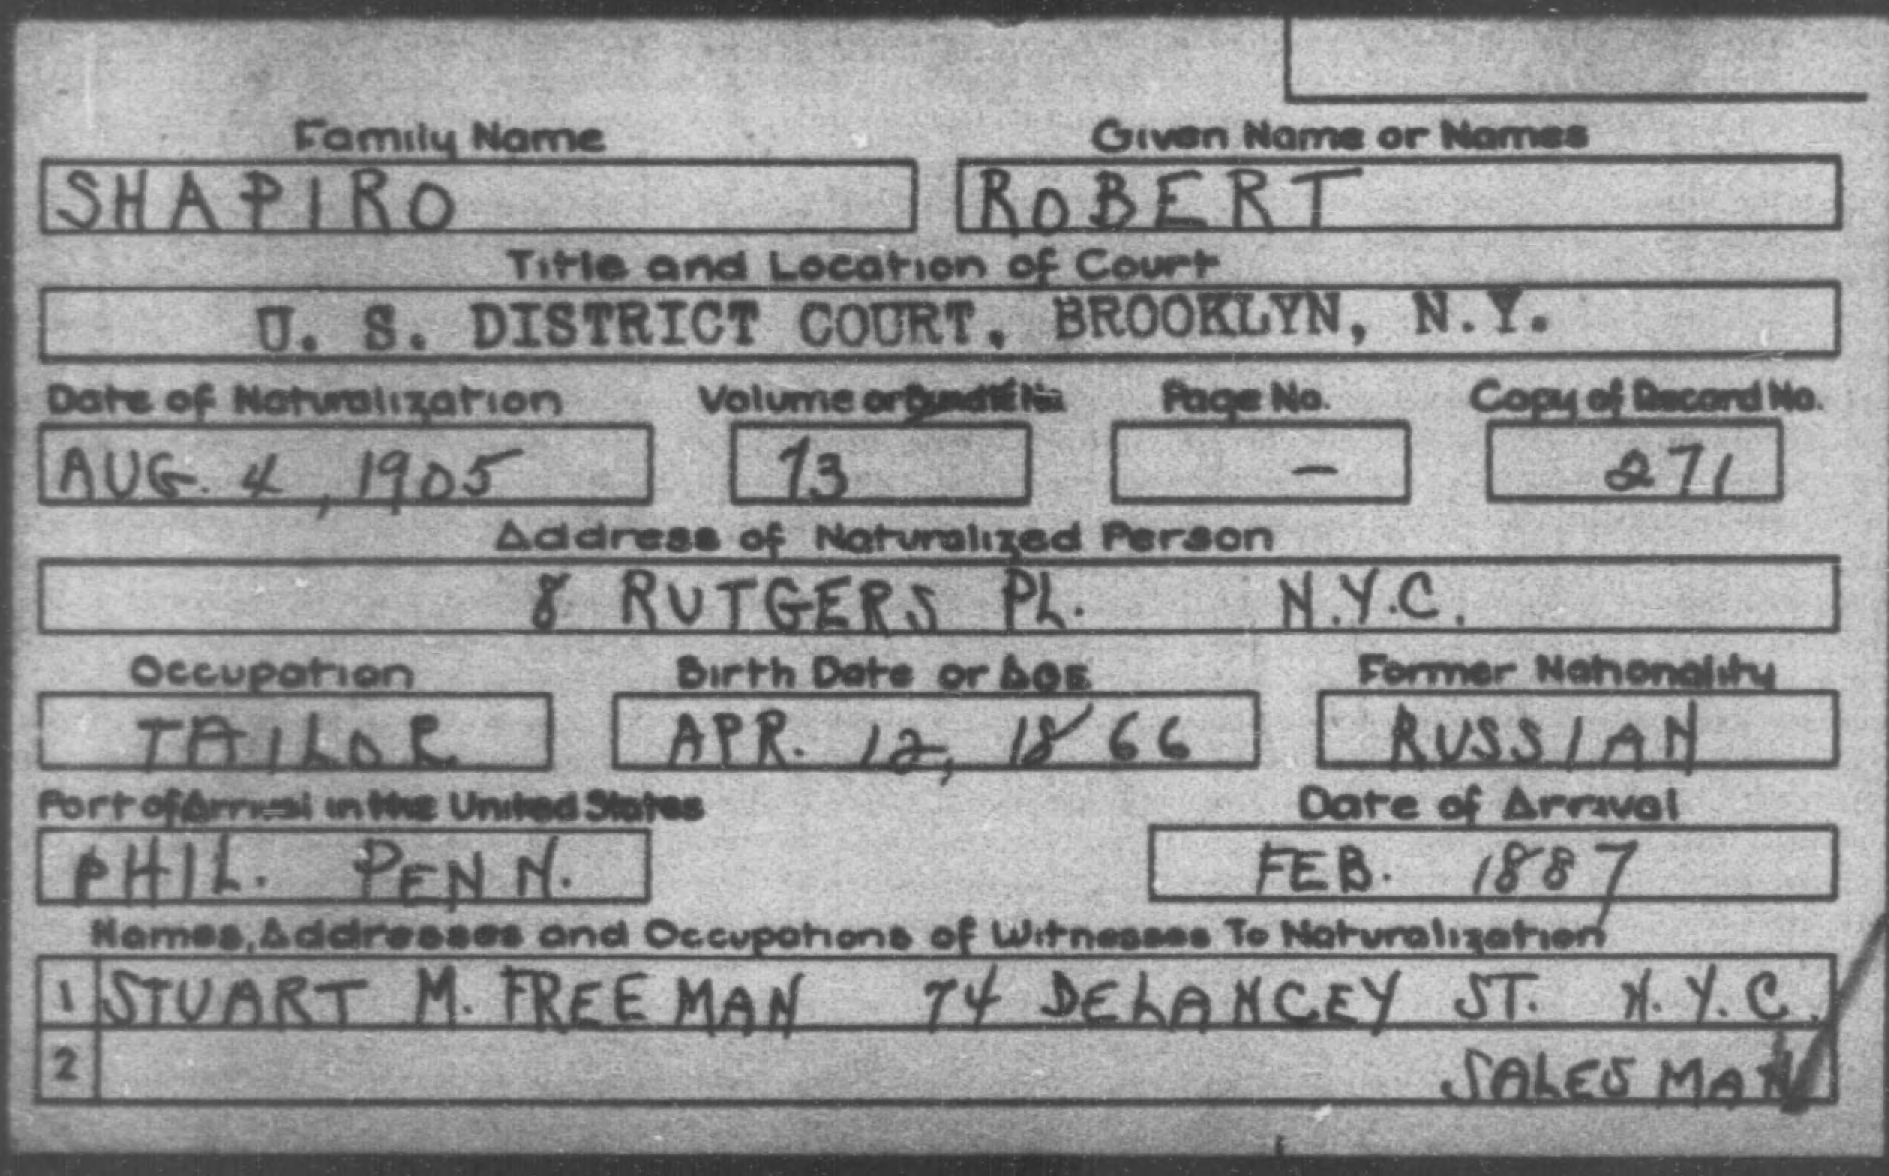 Family Name Given Name or Names
SHAPIRO ROBERT
Title and Location of Court
U. S. DISTRICT COURT, BROOKLYN, N.Y.
Date of Naturalization Volume or Bundle No. Page No. Copy of Record No.
AUG. 4, 1905 73 - 271
Address of Naturalized Person
8 RUTGERS PL. N.Y.C.
Occupation Birth Date or Age Former Nationality
TAILOR APR. 12, 1866 RUSSIAN
Port of Arrival in the United States Date of Arrival
PHIL. PENN. FEB. 1887
Names, Addresses and Occupations of Witnesses To Naturalization
1 STUART M. FREEMAN 74 DELANCEY ST. N.Y.C.
2 SALESMAN